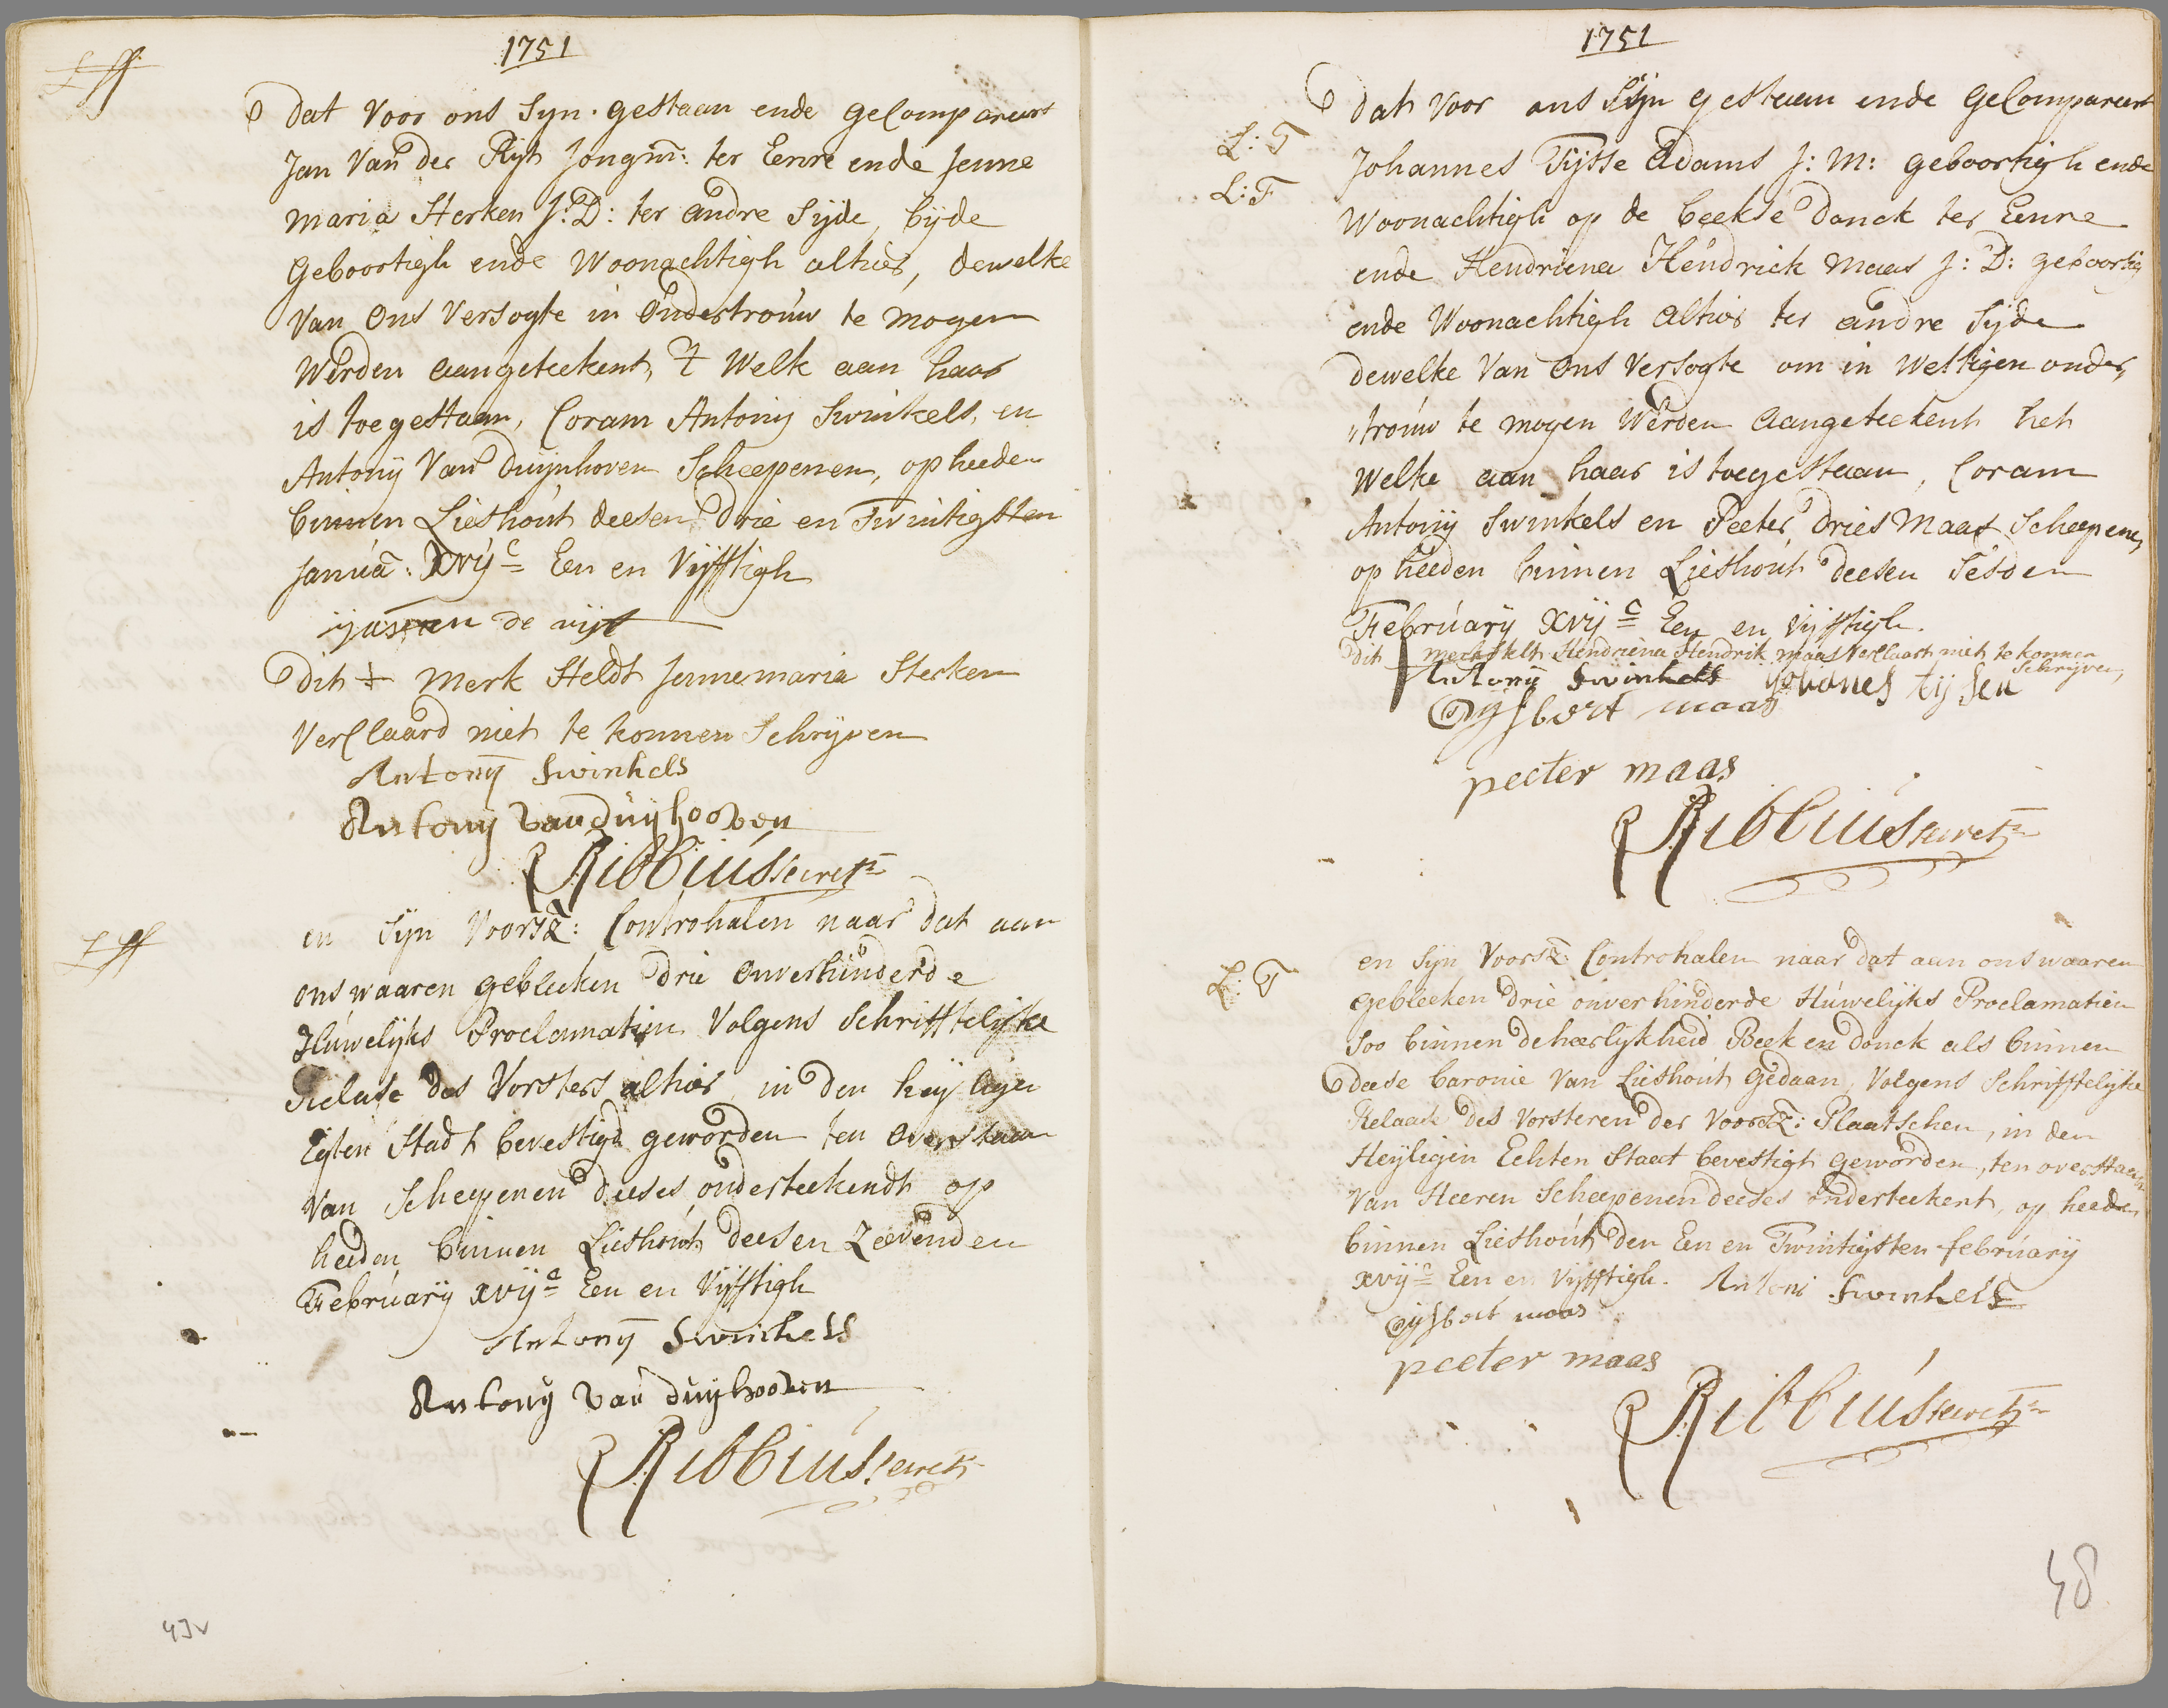 1751
dat voor ons Syn gestaan ende gecompareert
Jan Van der Rijt Jongm: ter Eenre ende Jenne
maria Sterken J: D: ter andre Sijde, bijde
Geboortigh ende Woonachtigh alhier, dewelke
Van Ons Versogte in Ondertrouw te mogen
Werden aangeteekent, 't Welk aan haar
is toegestaan, Coram Antonij Swinkels, en
Antonij Van Duijnhoven Scheepenen, op heeden
binnen Lieshout deesen drie en Twintigsten
Janua: Xvijc Een en Vijfftigh
de rijt
Dit + Merk Steldt Jennemaria Sterken
Verclaard niet te konnen Schrijven
Antonij Swinkels
Antonij van duijhooven
Ribbius secrets
en Sijn Voorsz: Controhalen naar dat aan
ons waaren gebleeken drie onverhinderde
Huwelijks Proclamatien Volgens Schrifftelijke
Relase des Vorsters alhier, in den heijligen
Egten Stadt bevestigd geworden ten overstaan
Van Scheepenen deeses onderteekendt op
heeden binnen Lieshout deesen Zeevenden
Februarij xvijc Een en Vijfftigh
Antonij Swinkels
Antonij van duijhooven
Ribbius secrets
43v
1751
dat voor ons Sijn gestaan ende Gecompareert
L: T
Johannes Tijsse Adams J: M: geboortigh ende
L: F
Woonachtigh op de beekse donck ter Eenre
ende Hendriena Hendrick Maas J: D: geboortig
ende Woonachtigh alhier ter andre Sijde
dewelke Van Ons Versogte om in Wettigen onder,
trouw te mogen Werden aangeteekent het
Welke aan haar is toegestaan, Coram
Antonij Swinkels en Peeter Dries Maas Scheepenen,
op heeden binnen Lieshout deesen Sesden
Februarij xvijc Een en Vijfftigh.
Dit merk stelt Hendriena Hendrik maas Verclaart niet te konnen
Schrijven,
Antonij Swinkels Johanes tijsen
Gijsbert maas
peeter maas
Ribbius secrets
en Sijn Voorsz: Controhalen naar dat aan ons waaren
L: T
gebleeken drie onverhinderde Huwelijks Proclamatien
Soo binnen de heerlijkheid Beek en donck als binnen
deese baronie Van Lieshout Gedaan, Volgens Schrifftelijke
Relaase des Vorsteren der Voorsz: Plaatschen, in den
Heijligen Echten Staat bevestigt geworden, ten overstaan
Van Heeren Scheepenen deeses onderteekent, op heeden
binnen Lieshout den Een en Twintigsten februarij
xvijc Een en Vijfftigh. Antoni Swinkels
Gijsbert maas
peeter maas
Ribbius secrets
48